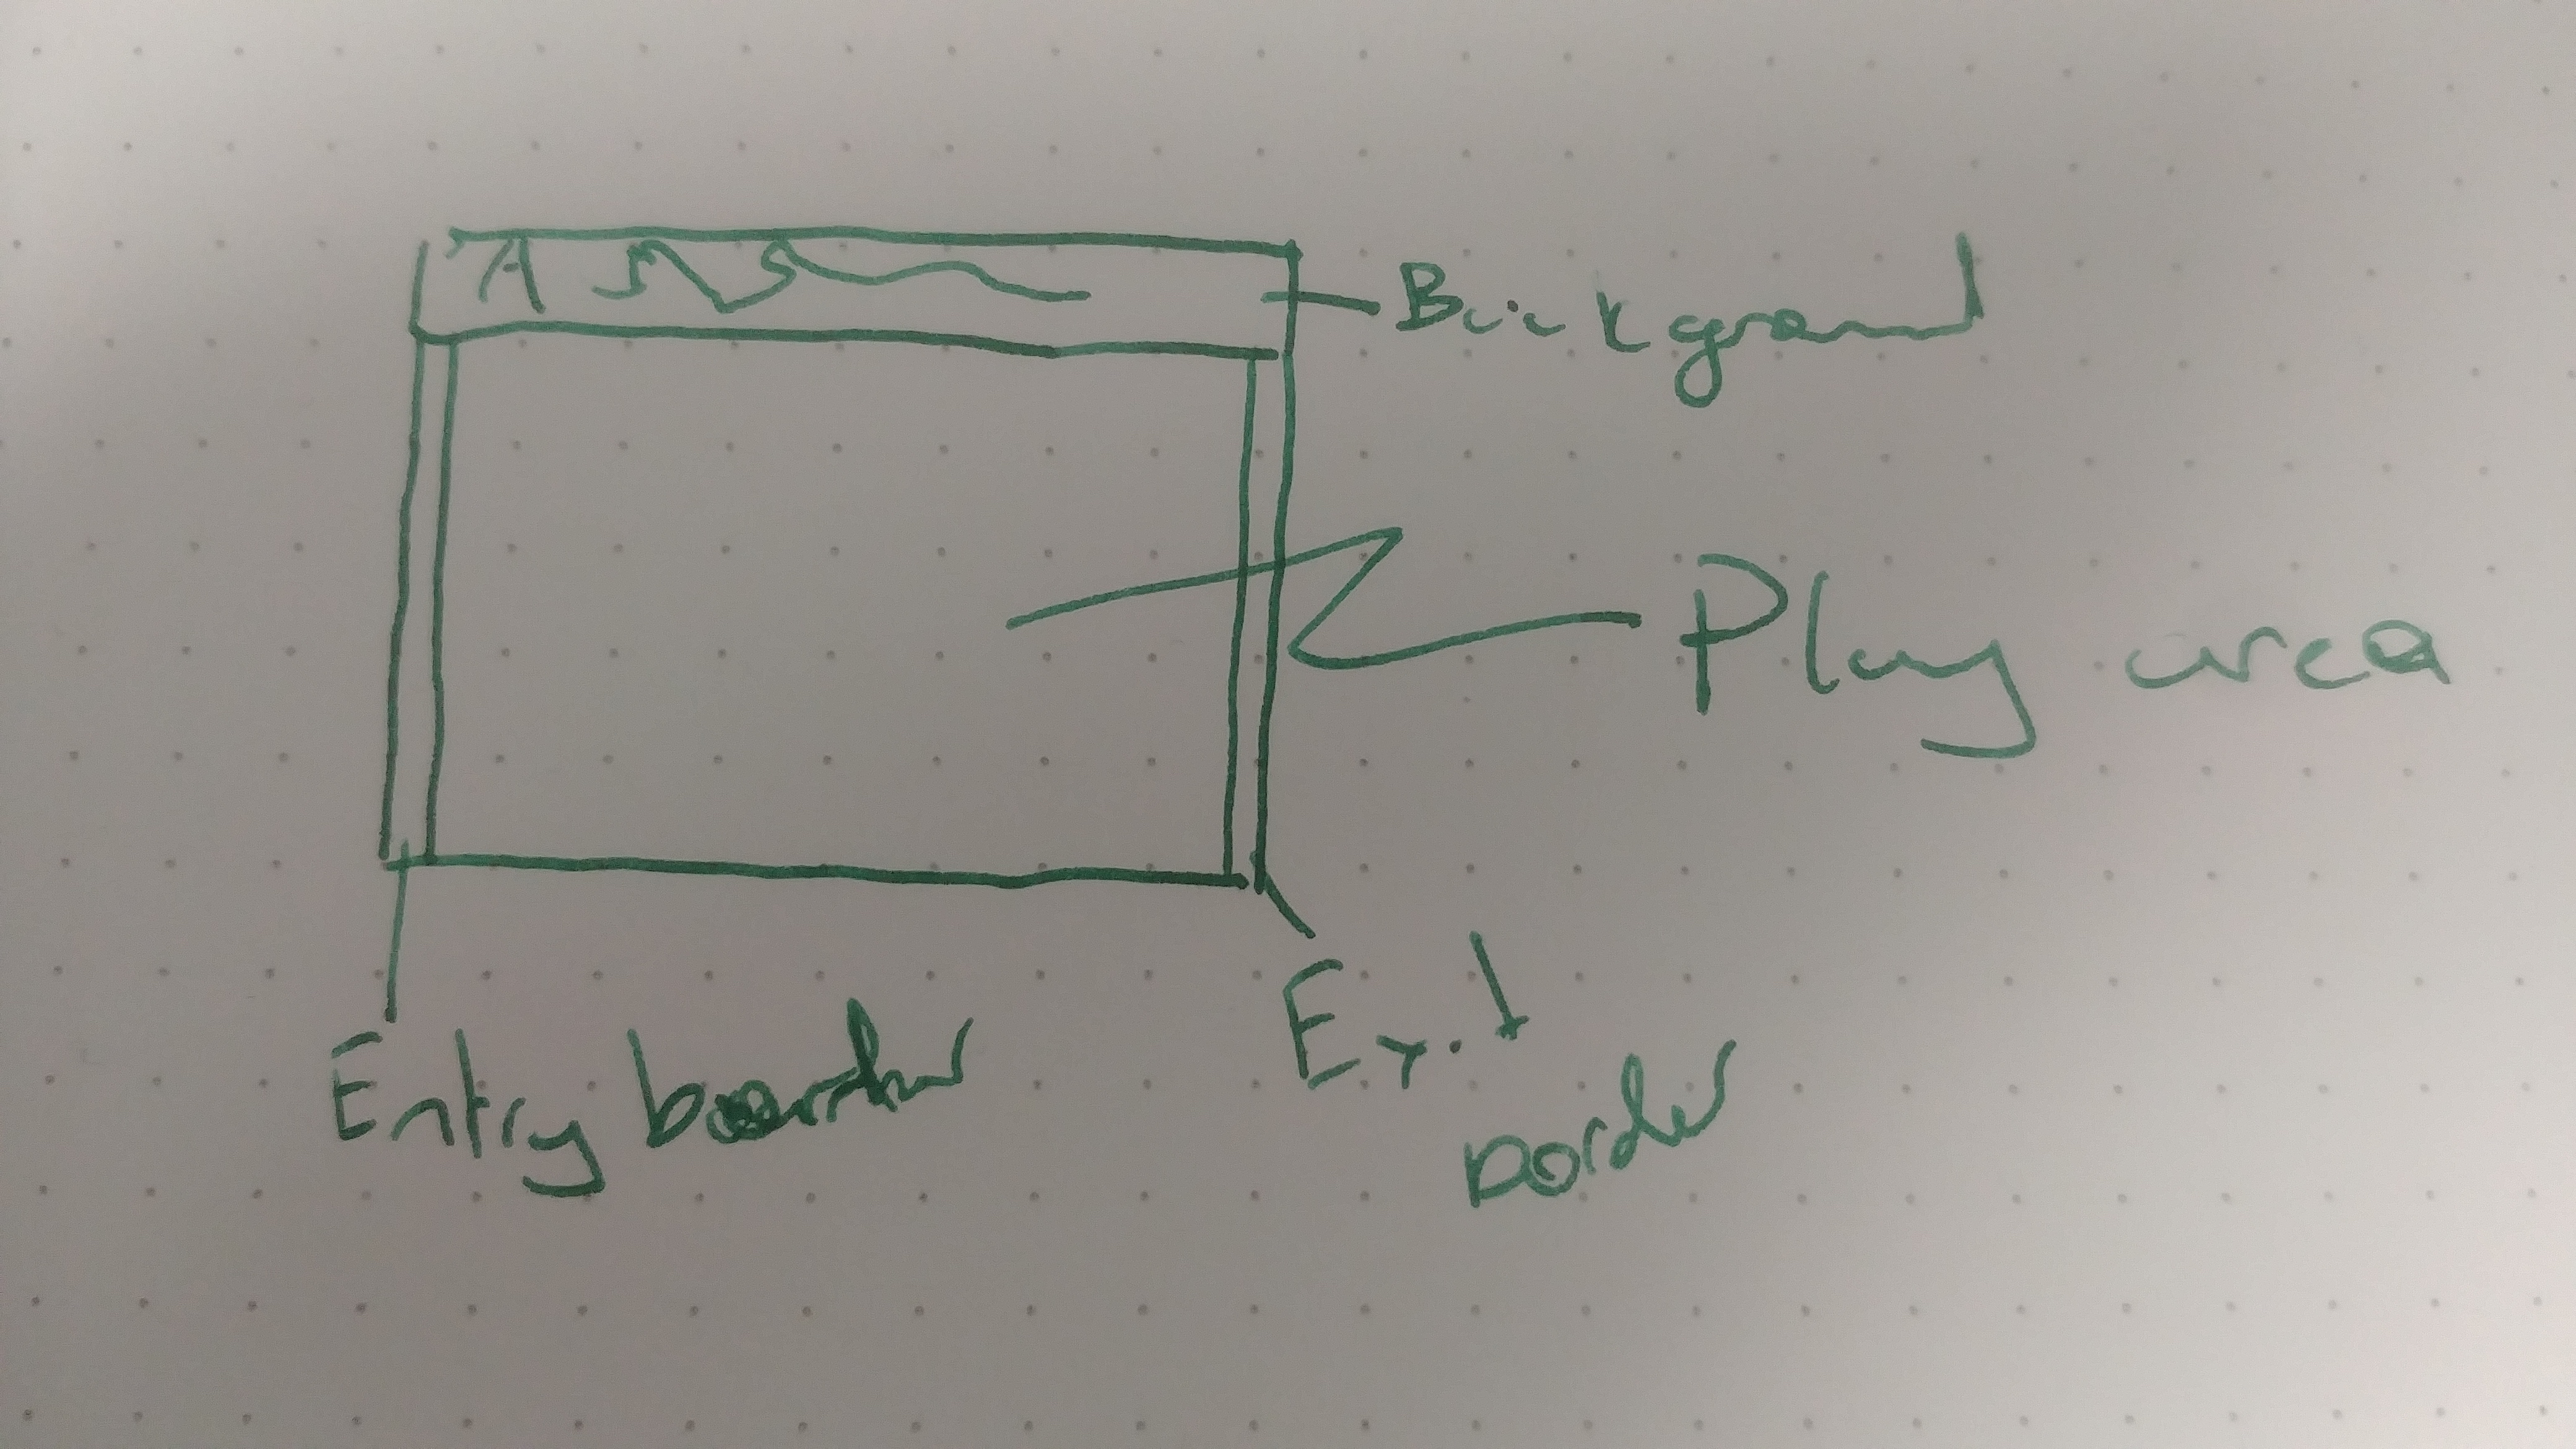 Background
Play area
Entry border
Exit
border